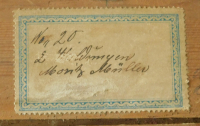 No 20.
2 H. Dünzen
Moritz Müller